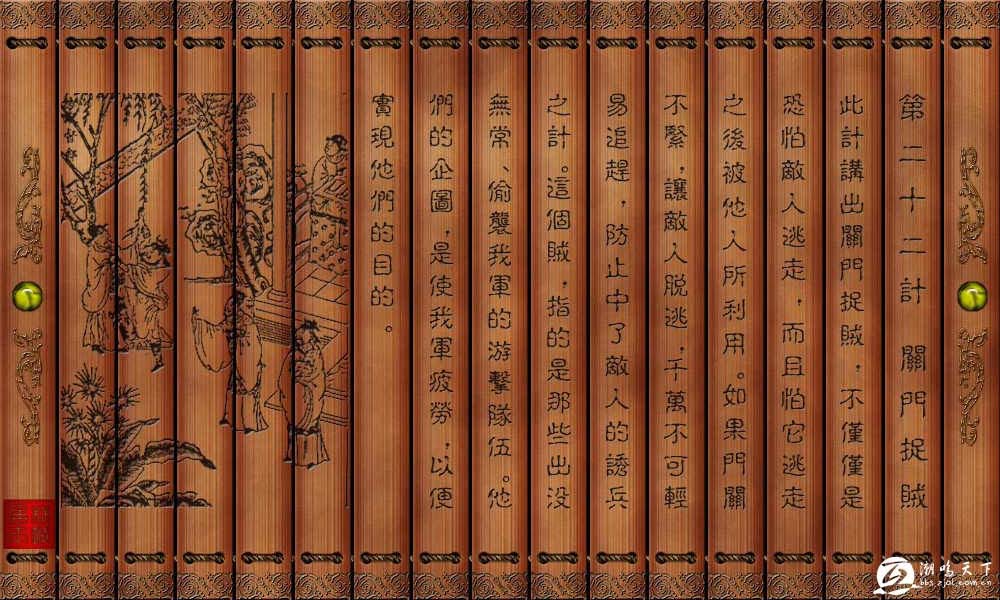 第二十二計 關門捉賊
此計講出關門捉賊，不僅僅是
恐怕敵人逃走，而且怕它逃走
之後被他人所利用。如果門關
不緊，讓敵人脱逃，千萬不可輕
易追趕，防止中了敵人的誘兵
之計。這個賊，指的是那些出没
無常、偷襲我軍的游擊隊伍。他
們的企圖，是使我軍疲勞，以便
實現他們的目的。
潮鸣天下
bbs.zol.com.cn